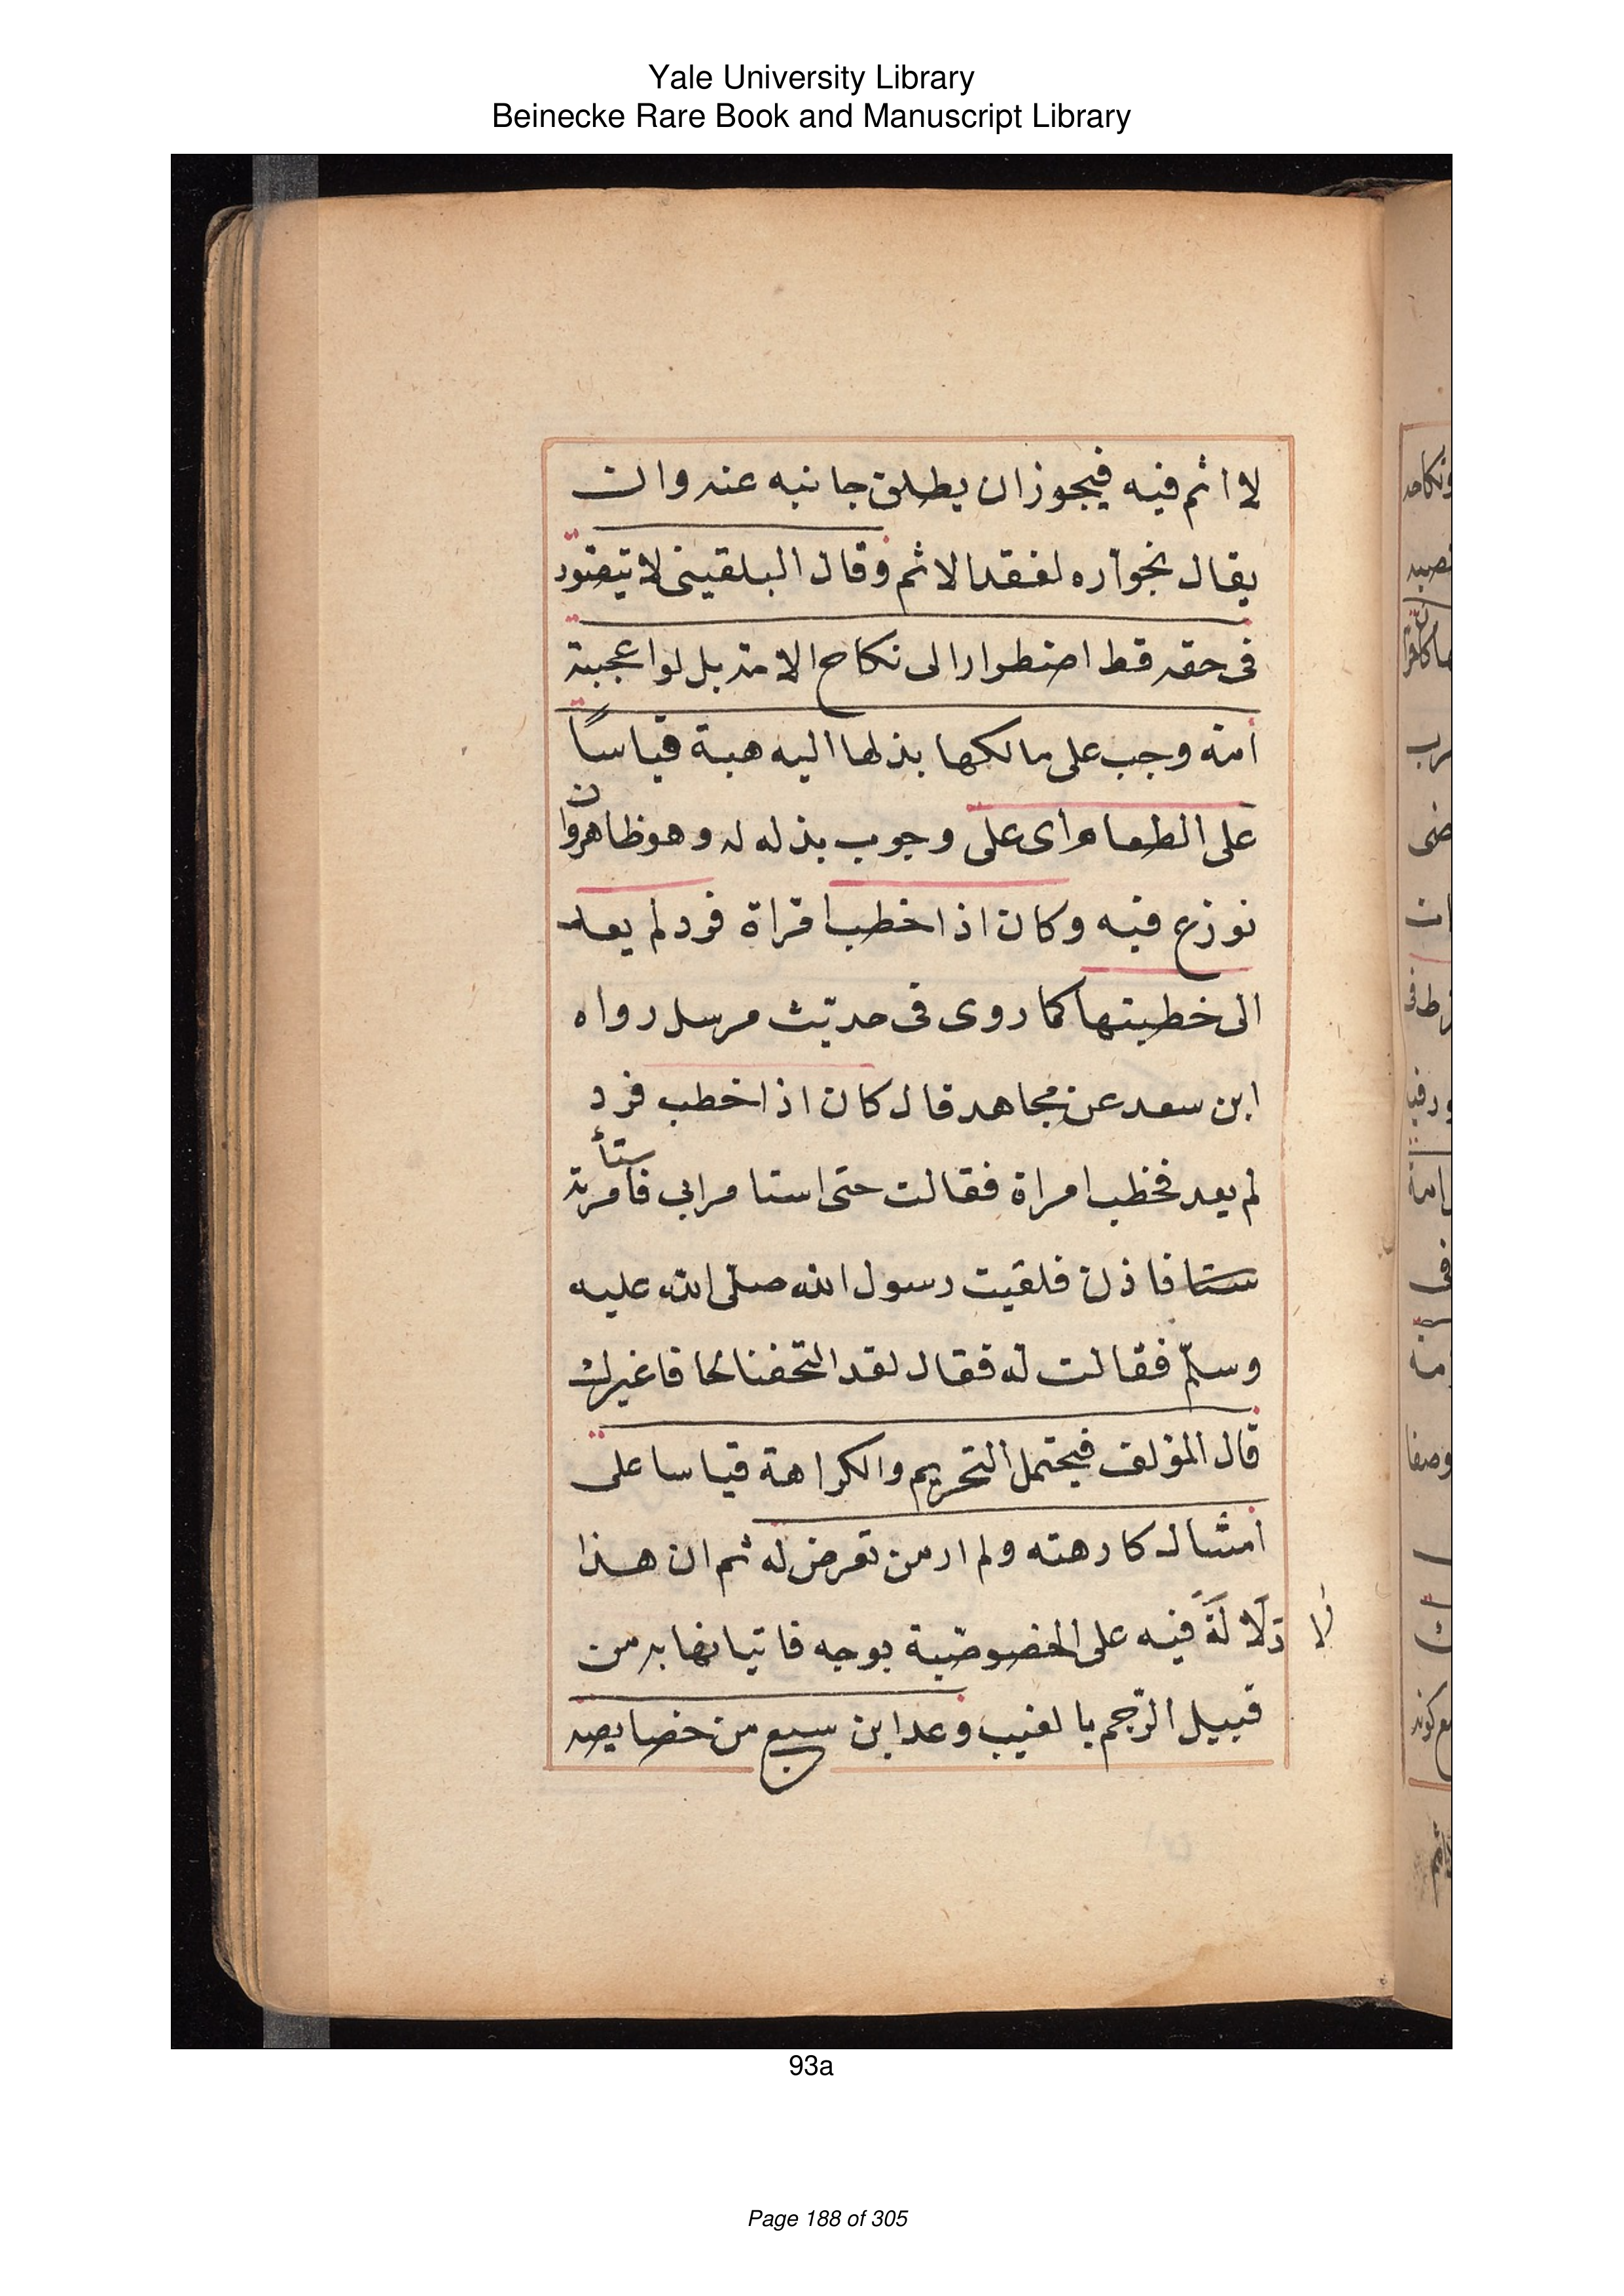 Yale University Library
Beinecke Rare Book and Manuscript Library
لا اثم فيه فيجوز ان يطلق جانبه عنه وان
يقال بجوازه لفقد الاثم وقال البلقينى لا يتصور
فى حقه قط اضطرار الى نكاح الامة بل لو اعجبته
امة وجب على مالكها بذلها اليه هبة قياسًا
على الطعام اى على وجوب بذله له وهو ظاهر وان
نوزع فيه وكان اذا خطب اقراة فرد لم يعد
الى خطبتها كما روى فى حديث مرسل رواه
ابن سعد عن مجاهد قال كان اذا خطب فرد
لم يعد فخطب امراة فقالت حتى استامر ابى فاستأمرته
فاذن فلقيت رسول الله صلى الله عليه
وسلّم فقالت له فقال لقد التحفنا لحافا غيرك
قال المؤلف فيحتمل التحريم والكراهة قياسا على
امثاله كارهته ولم ار من تعرض له ثم ان هذا
لا
دَلَالَةً فيه على الخصوصيّة بوجه فاتيانها به من
قبيل الرّجم بالغيب وعد ابن سبع من خصايصه
93a
Page 188 of 305